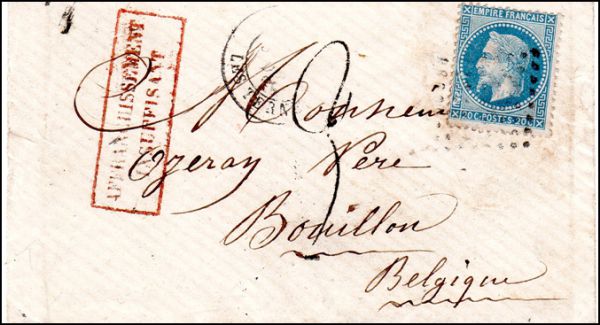 EMPIRE FRANÇAIS
20 C. POSTES 20 C.
AFFRANCHISSEMENT
INSUFFISANT
Monsieur
Ozeray Père
Bouillon
Belgique